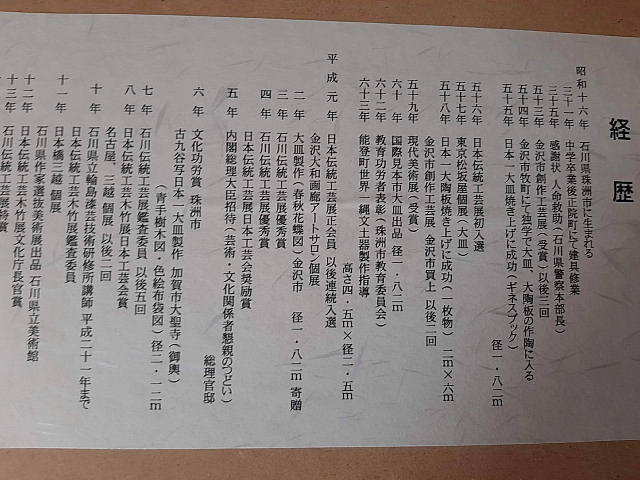 経歴
昭和十六年 石川県珠洲市に生まれる
三十一年 中学卒業後正院町にて建具修業
三十五年 感謝状 人命救助（石川県警察本部長）
五十三年 金沢市創作工芸展（受賞）以後三回
五十四年 金沢市牧町にて独学で大皿、大陶板の作陶に入る
五十五年 日本一大皿焼き上げに成功（ギネスブック）
径一・八二m
五十六年 日本伝統工芸展初入選
五十七年 東京松坂屋個展（大皿）
五十八年 日本一大陶板焼き上げに成功（一枚物）二m×六m
金沢市創作工芸展 金沢市買上 以後二回
五十九年 現代美術展（受賞）
六十年 国際見本市大皿出品 径一・八二m
六十二年 教育功労者表彰（珠洲市教育委員会）
六十三年 能登町世界一縄文土器製作指導
高さ四・五m×径二・五m
平成元年 日本伝統工芸展正会員 以後連続入選
金沢大和画廊アートサロン個展
二年 大皿製作（春秋花蝶図）金沢市 径一・八二m 寄贈
三年 石川伝統工芸展優秀賞
四年 石川伝統工芸展優秀賞
日本伝統工芸展日本工芸会奨励賞
五年 内閣総理大臣招待（芸術・文化関係者懇親のつどい）
総理官邸
六年 文化功労賞 珠洲市
古九谷写日本一大皿製作 加賀市大聖寺（御輿）
（青手樹木図・色絵布袋図）径二・一二m
七年 石川伝統工芸展鑑査委員 以後五回
八年 日本伝統工芸木竹展日本工芸会賞
名古屋、三越 個展 以後二回
日本伝統工芸木竹展鑑査委員
十年 石川県立輪島漆芸技術研修所講師 平成二十一年まで
十一年 日本橋三越 個展
石川県作家選抜美術展出品 石川県立美術館
十二年 日本伝統工芸木竹展文化庁長官賞
十三年 石川伝統工芸展特賞